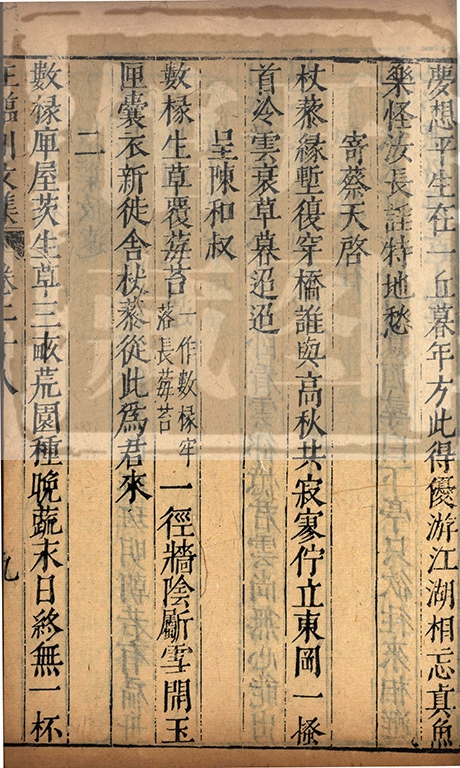 夢想平生在一丘暮年方此得優游江湖相忘真魚
樂怪汝長謡特地愁
寄蔡天啓
杖藜緣塹復穿橋誰與高秋共寂寥佇立東岡一搔
首冷雲衰草暮迢迢
呈陳和叔
數椽生草覆莓苔一作數椽牢落長莓苔一徑牆陰斸雪開玉
匣囊衣新徙舍杖藜從此爲君來
二
數椽庳屋茨生草三畝荒園種晚蔬末日終無一杯
王臨川文集 卷三十八 九